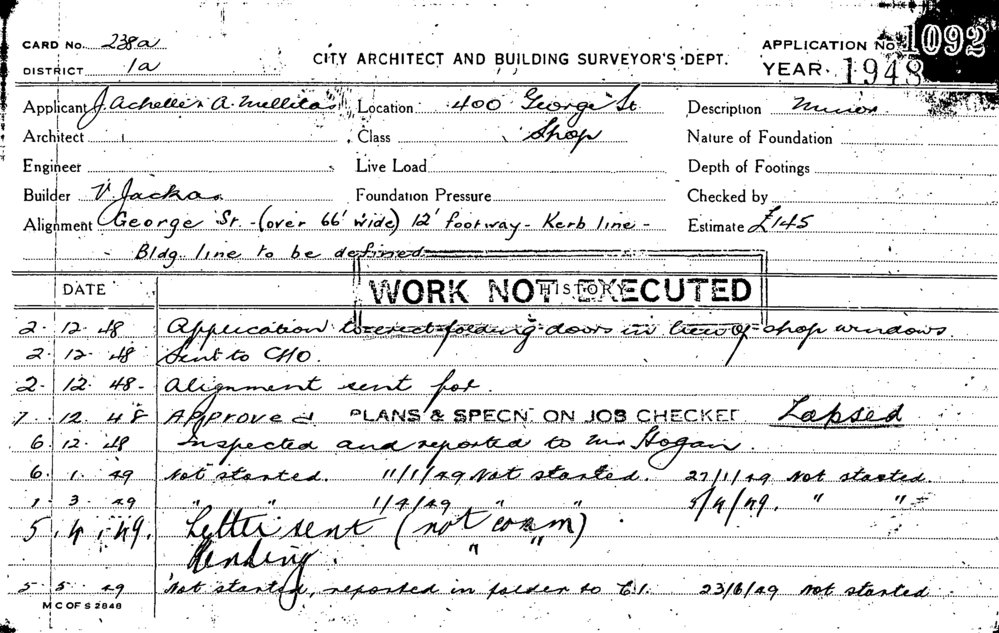 CARD No. 238a CITY ARCHITECT AND BUILDING SURVEYOR'S DEPT. APPLICATION No 1092
DISTRICT 1a YEAR. 1948
Applicant J. Achelles A. Mellitas Location 400 George St Description Minor
Architect Class Shop Nature of Foundation
Engineer Live Load Depth of Footings
Builder V. Jackas Foundation Pressure Checked by
Alignment George St. - (over 66' wide) 12' footway - Kerb line - Estimate £145
- Bldg. line to be defined
DATE HISTORY
WORK NOT EXECUTED
2. 12. 48 Application to erect folding doors in lieu of shop windows.
2. 12. 48 Sent to CHO.
2. 12. 48 - Alignment sent for.
7 12. 48 Approved PLANS & SPECN ON JOB CHECKED Lapsed
6 12. 48 Inspected and reported to Mr Hogan.
6. 1. 49 Not started. 11/1/49 Not started. 27/1/49 Not started.
1. 3. 49 " " 1/4/49 " " 5/4/49. " "
5. 4. 49. Letter sent (not comm)
Pending. " "
5 5 49 Not started, reported in folder to C.I. 23/6/49 Not started
M C OF S 2848